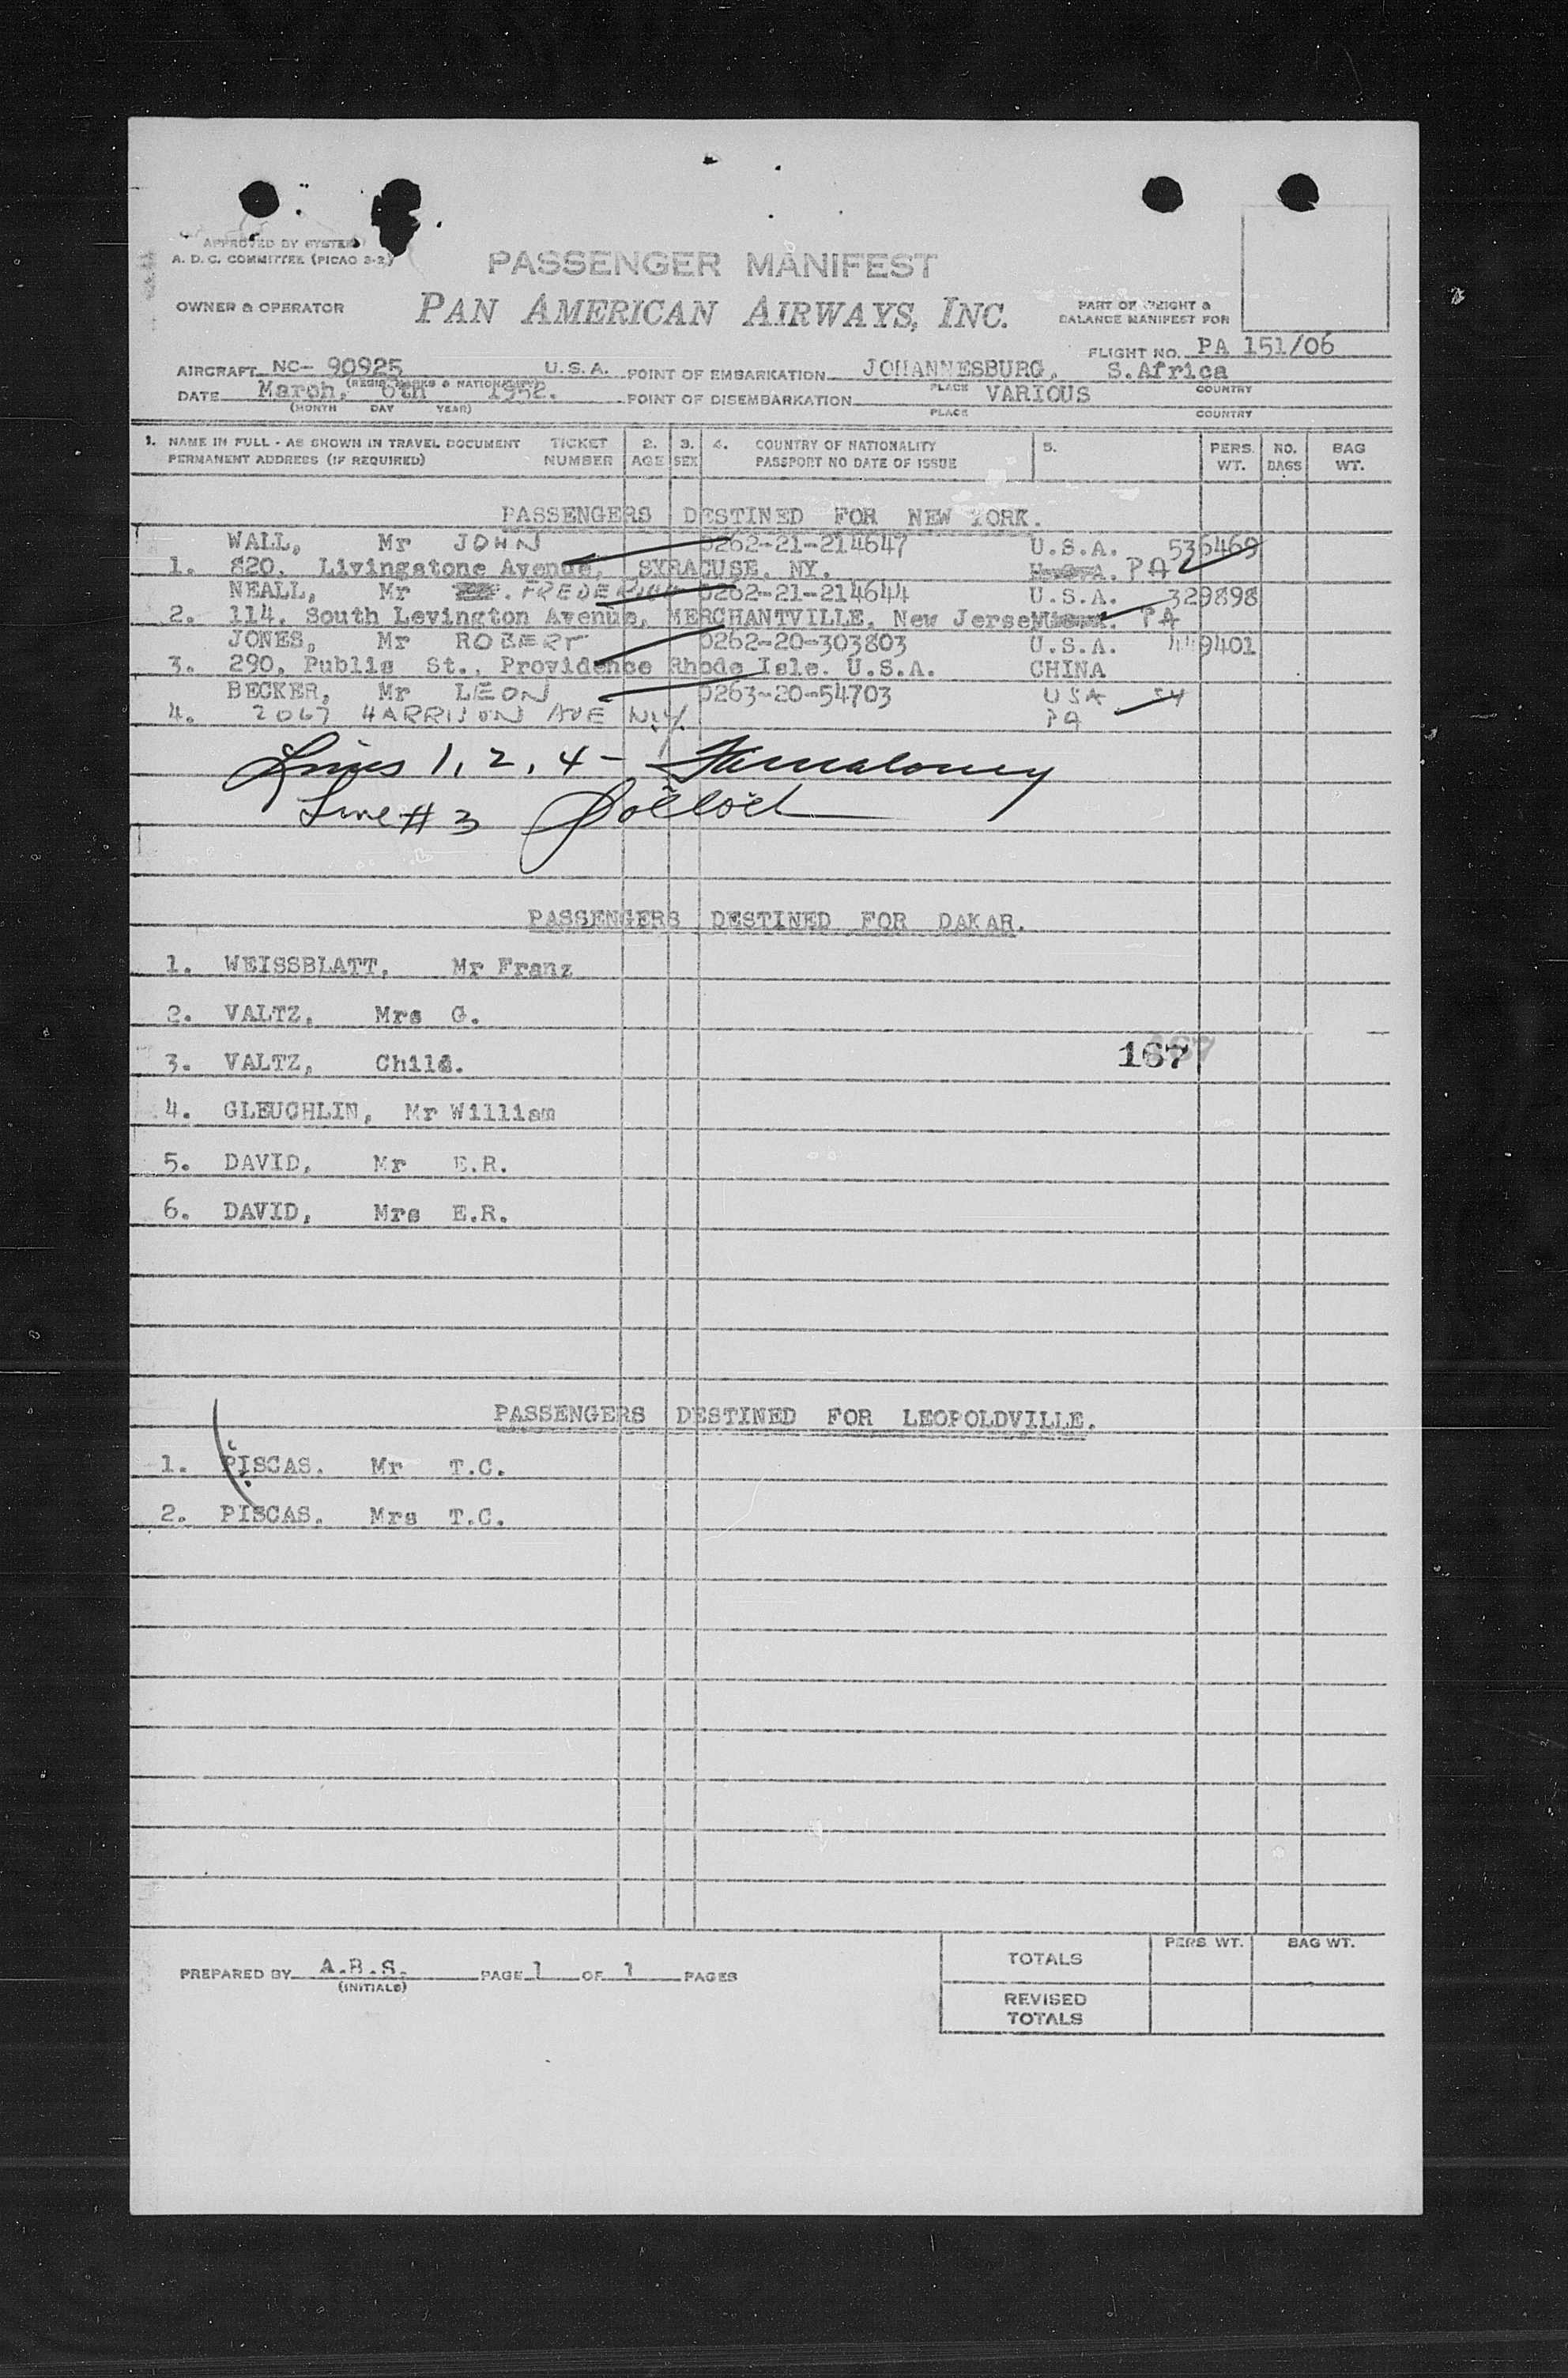 APPROVED BY SYSTEM
A. D. C. COMMITTEE (PICAO 3-2)
PASSENGER MANIFEST
OWNER & OPERATOR PAN AMERICAN AIRWAYS, INC.
PART OF WEIGHT &
BALANCE MANIFEST FOR
FLIGHT NO. PA 151/06
AIRCRAFT NC- 90925 U.S.A. POINT OF EMBARKATION JOHANNESBURG, S.Africa
(REGIS. MARKS & NATIONALITY) PLACE COUNTRY
DATE March, 6th 1952. POINT OF DISEMBARKATION VARIOUS
(MONTH DAY YEAR) PLACE COUNTRY
1. NAME IN FULL - AS SHOWN IN TRAVEL DOCUMENT TICKET 2. 3. 4. COUNTRY OF NATIONALITY 5. PERS. NO. BAG
PERMANENT ADDRESS (IF REQUIRED) NUMBER AGE SEX PASSPORT NO DATE OF ISSUE WT. BAGS WT.
PASSENGERS DESTINED FOR NEW YORK.
WALL, Mr JOHN 0262-21-214647 U.S.A. 536469
1. 820, Livingstone Avenue, SYRACUSE, NY. U.S.A. PA
NEALL, Mr FREDERICK 0262-21-214644 U.S.A. 329898
2. 114, South Levington Avenue, MERCHANTVILLE, New Jersey PA
JONES, Mr ROBERT 0262-20-303803 U.S.A. 449401
3. 290, Publis St., Providence Rhode Isle. U.S.A. CHINA
BECKER, Mr LEON 0263-20-54703 USA
4. 2067 HARRISON AVE N.Y. PA
Lines 1, 2, 4 -
Line # 3
PASSENGERS DESTINED FOR DAKAR.
1. WEISSBLATT, Mr Franz
2. VALTZ, Mrs G.
3. VALTZ, Child. 167
4. GLEUCHLIN, Mr William
5. DAVID, Mr E.R.
6. DAVID, Mrs E.R.
PASSENGERS DESTINED FOR LEOPOLDVILLE.
1. PISCAS. Mr T.C.
2. PISCAS. Mrs T.C.
PREPARED BY A.B.S. PAGE 1 OF 1 PAGES
(INITIALS)
TOTALS PERS WT. BAG WT.
REVISED
TOTALS